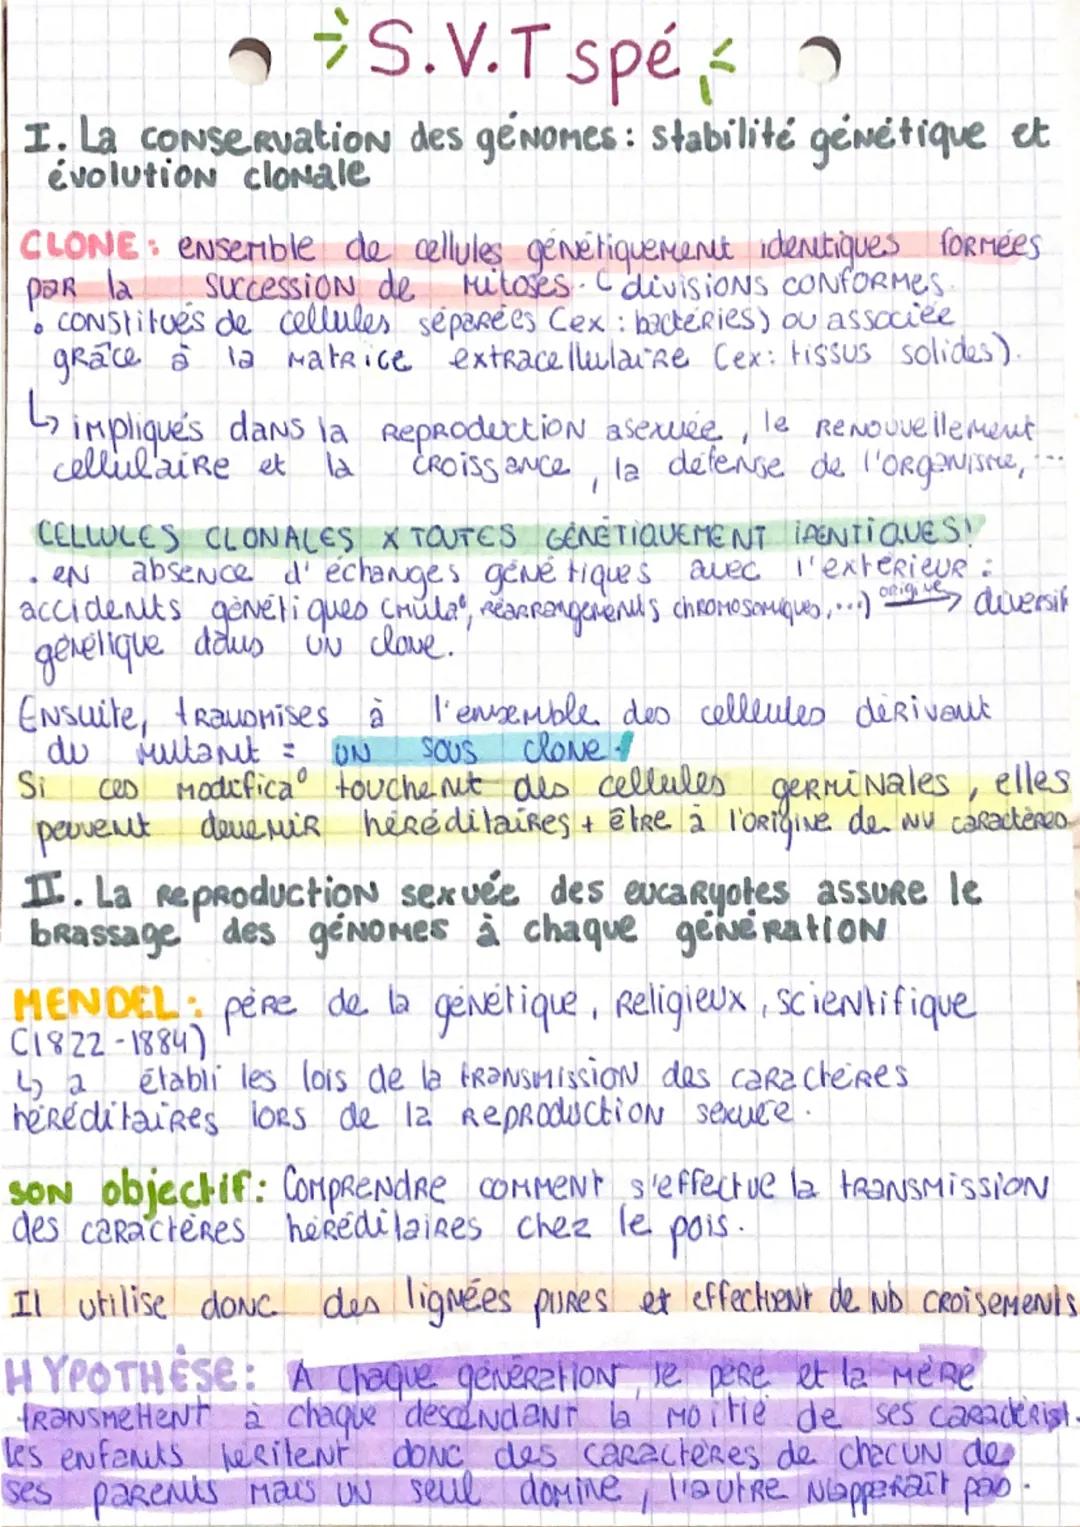 S.V.T spé
I. La conservation des génomes : stabilité génétique et
évolution clonale
CLONE : ensemble de cellules génétiquement identiques formées
par la succession de mitoses. ( divisions conformes
• constitués de cellules séparées (ex : bactéries) ou associée
grâce à la matrice extracellulaire (ex: tissus solides).
↳ impliqués dans la reproduction asexuée, le renouvellement
cellulaire et la croissance, la défense de l'organisme, ...
CELLULES CLONALES X TOUTES GÉNÉTIQUEMENT IDENTIQUES!
. en absence d'échanges génétiques avec l'extérieur :
accidents génétiques (muta°, réarrangements chromosomiques,...) origine → diversit
génétique dans un clone.
Ensuite, transmises à l'ensemble des cellules dérivant
du mutant = UN sous clone.
Si ces modifica° touchent des cellules germinales, elles
peuvent devenir héréditaires + être à l'origine de nv caractères
II. La reproduction sexuée des eucaryotes assure le
brassage des génomes à chaque génération
MENDEL : père de la génétique, religieux, scientifique
(1822-1884)
↳ a établi les lois de la transmission des caractères
héréditaires lors de la reproduction sexuée.
SON objectif: Comprendre comment s'effectue la transmission
des caractères héréditaires chez le pois.
Il utilise donc des lignées pures et effectuent de nb croisements
HYPOTHÈSE : A chaque génération, le père et la mère
transmettent à chaque descendant la moitié de ses caractérist.
les enfants héritent donc des caractères de chacun de
ses parents mais un seul domine, l'autre n'apparaît pas.